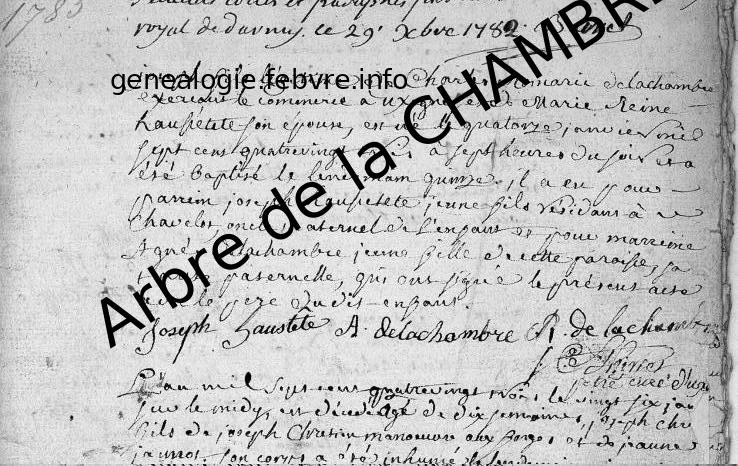 1783
royal de darney, ce 29e Xbre 1782.
genealogie.febvre.info
Arbre de la CHAMBRE
Charles Romarie delachambre
exerçant le commerce à uxegney et de Marie Reine
haustete son épouse, est né le quatorze janvier mil
sept cens quatrevingt trois à sept heures du soir et a
été baptisé le lendemain quinze. il a eu pour
parein joseph haustete jeune fils résidant à
Chavelot, oncle maternel de l'enfant et pour marreine
Agnès delachambre jeune fille de cette paroisse, sa
tante paternelle, qui ont signé le présent acte
avec le père dudit enfant.
Joseph haustête A. delachambre de lachambre
L'an mil sept cens quatrevingt trois le vingt six jan
sur le midy, est décédé agé de dix semaines, joseph Chr
fils de joseph Chretien manoeuvre aux forges et de jeanne
jacmot. son corps a été inhumé le lendemain